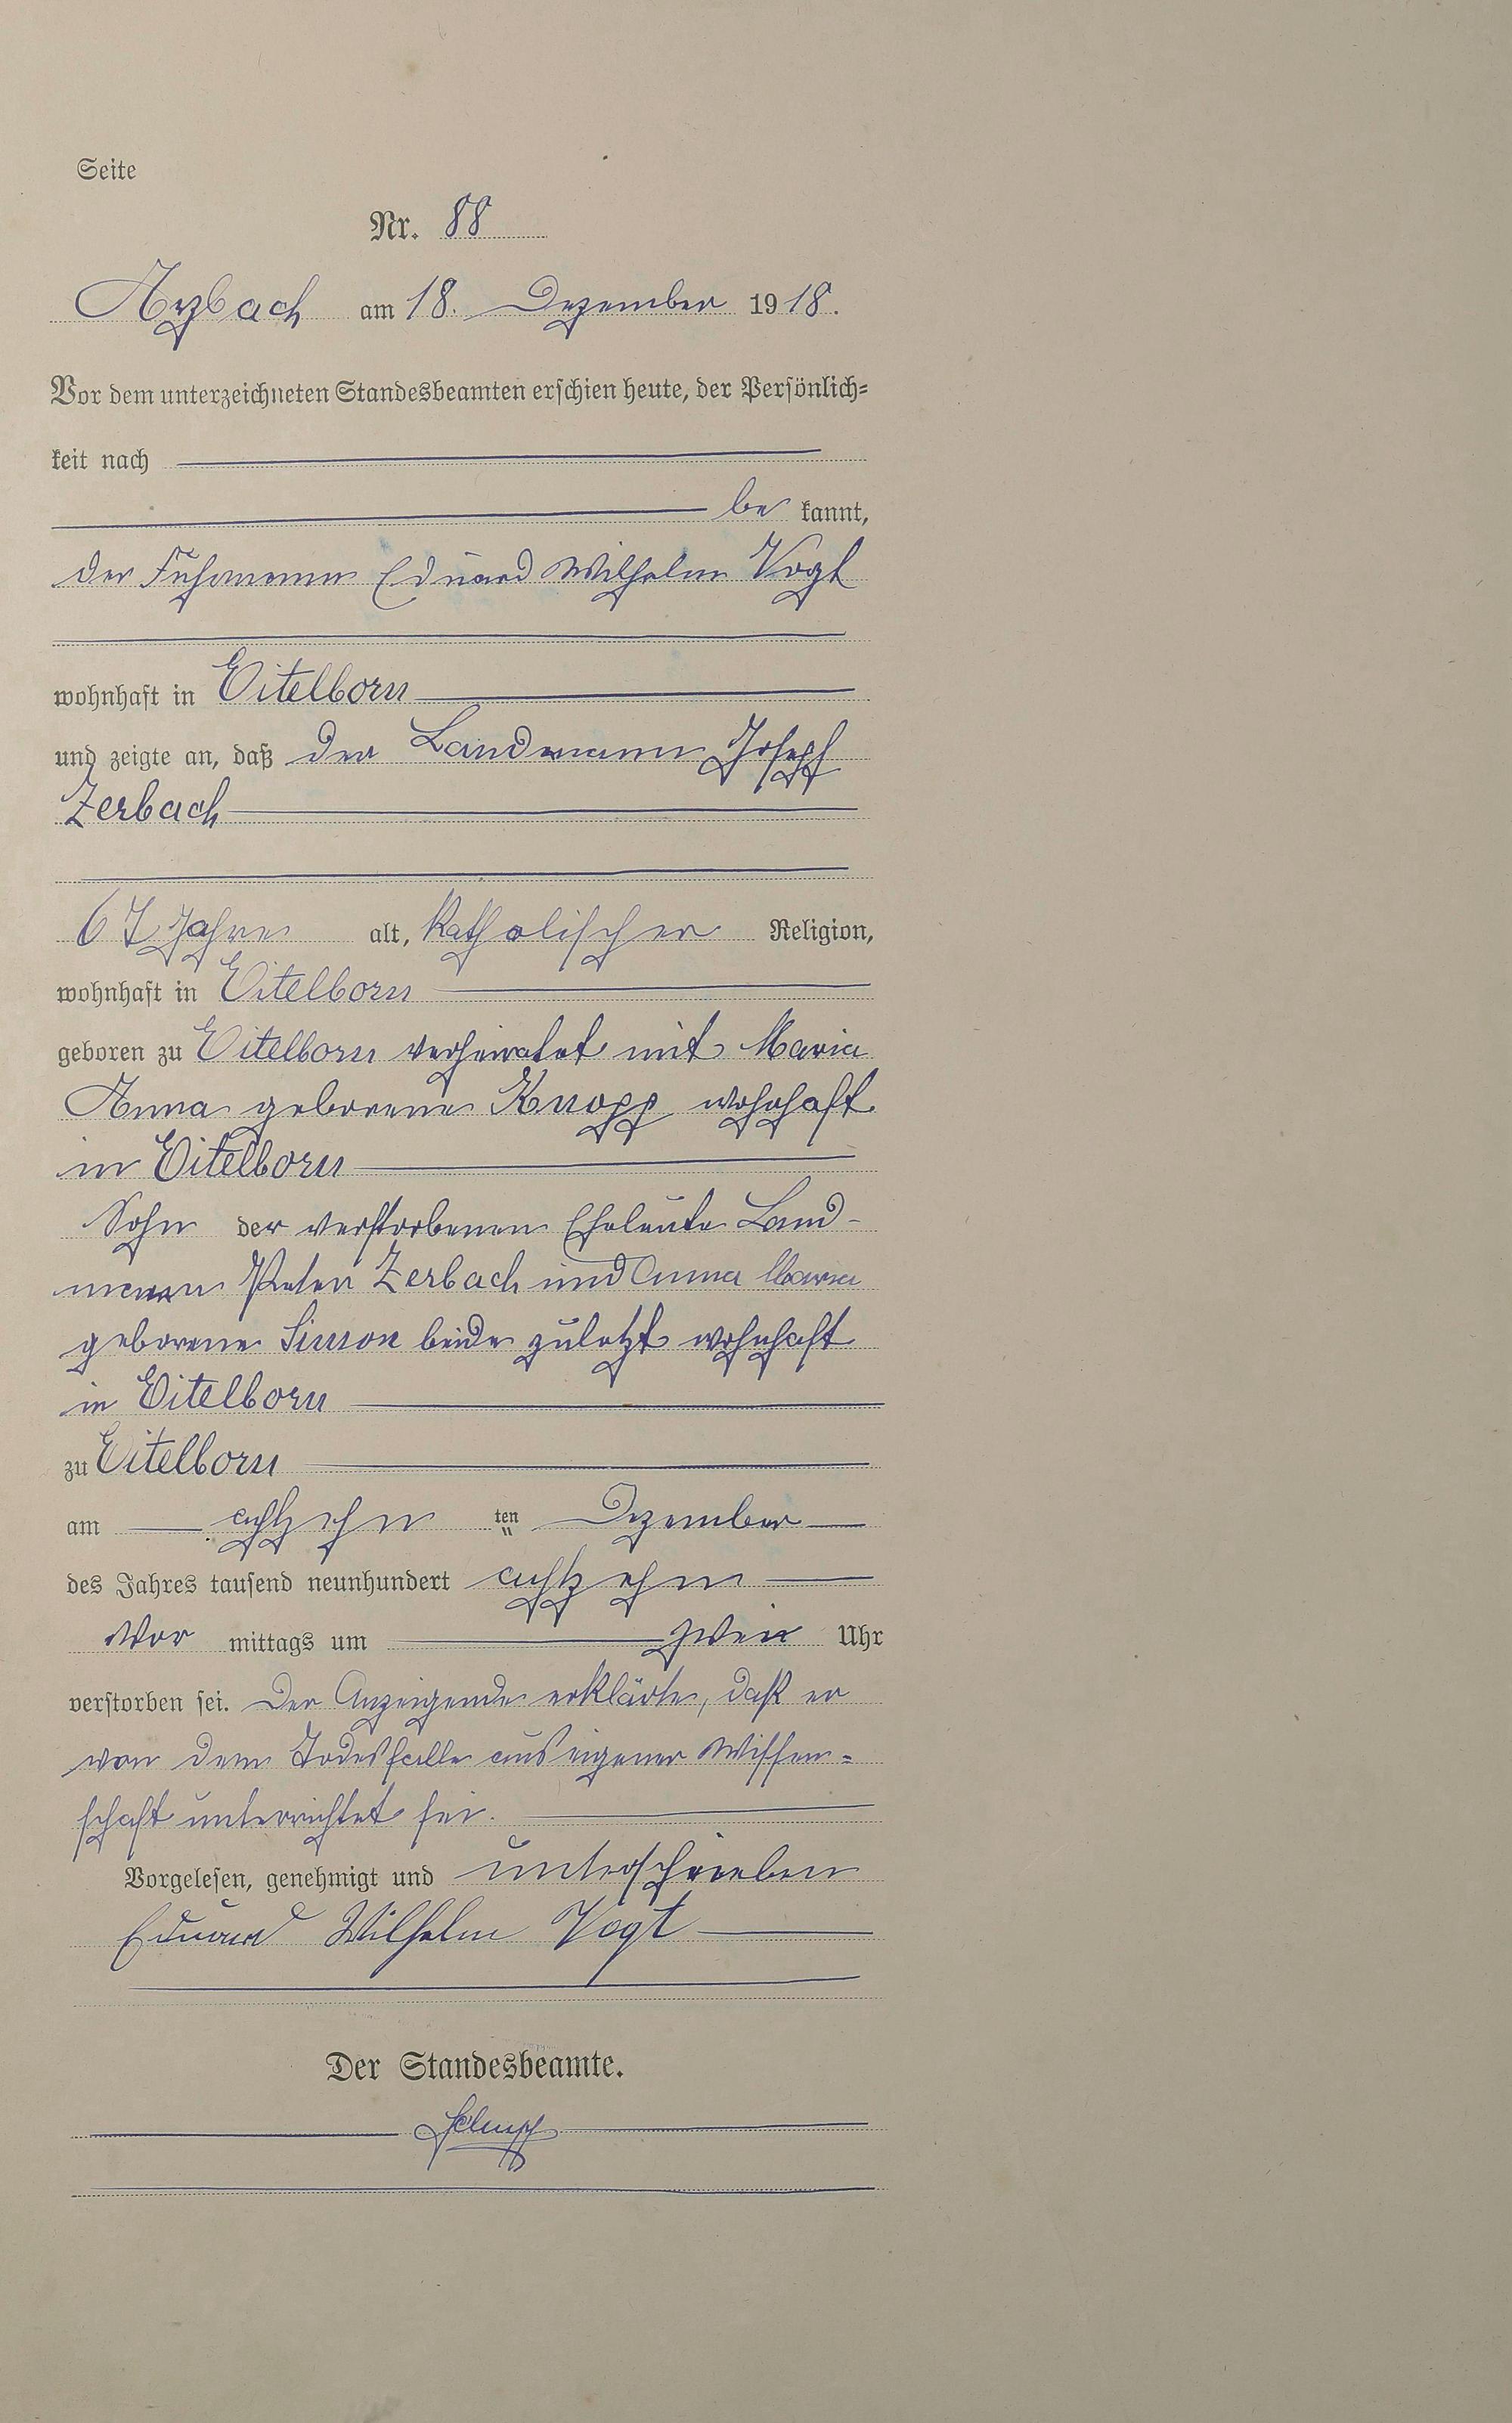 Seite
Nr. 88
Arzbach am 18. Dezember 1918.
Vor dem unterzeichneten Standesbeamten erschien heute, der Persönlich-
keit nach
be kannt,
der Fuhrmann Eduard Wilhelm Vogt
wohnhaft in Eitelborn
und zeigte an, daß der Landmann Joseph
Zerbach
67 Jahre alt, katholischer Religion,
wohnhaft in Eitelborn
geboren zu Eitelborn verheiratet mit Maria
Anna geborene Knopp wohnhaft
in Eitelborn
Sohn der verstorbenen Eheleute Land-
mann Peter Zerbach und Anna Maria
geborene Simon beide zuletzt wohnhaft
in Eitelborn
zu Eitelborn
am achtzehn ten Dezember
des Jahres tausend neunhundert achtzehn
Vor mittags um zwei Uhr
verstorben sei. Der Anzeigende erklärte, daß er
von dem Todesfalle aus eigener Wissen-
schaft unterrichtet sei.
Vorgelesen, genehmigt und unterschrieben
Eduard Wilhelm Vogt
Der Standesbeamte.